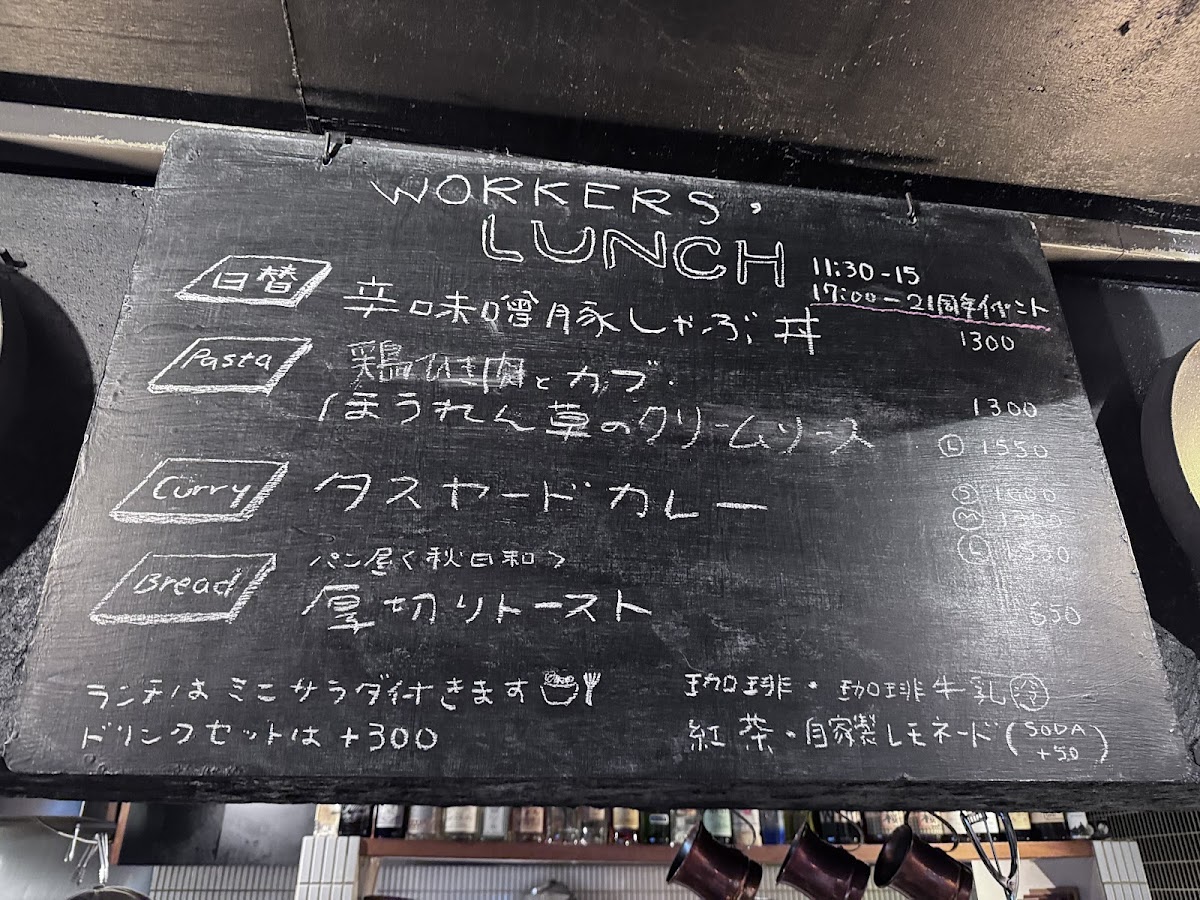 WORKERS'
LUNCH
11:30-15
17:00-21周年イベント
日替 辛口味噌豚しゃぶ丼 1300
Pasta 鶏ひき肉とカブ・
ほうれん草のクリームソース 1300
Ⓛ 1550
Curry タスヤードカレー Ⓢ 1000
Ⓜ 1300
Ⓛ 1550
Bread パン屋<秋日和>
厚切りトースト 650
ランチはミニサラダ付きます
ドリンクセットは +300
珈琲・珈琲牛乳 冷
紅茶・自家製レモネード (SODA +50)